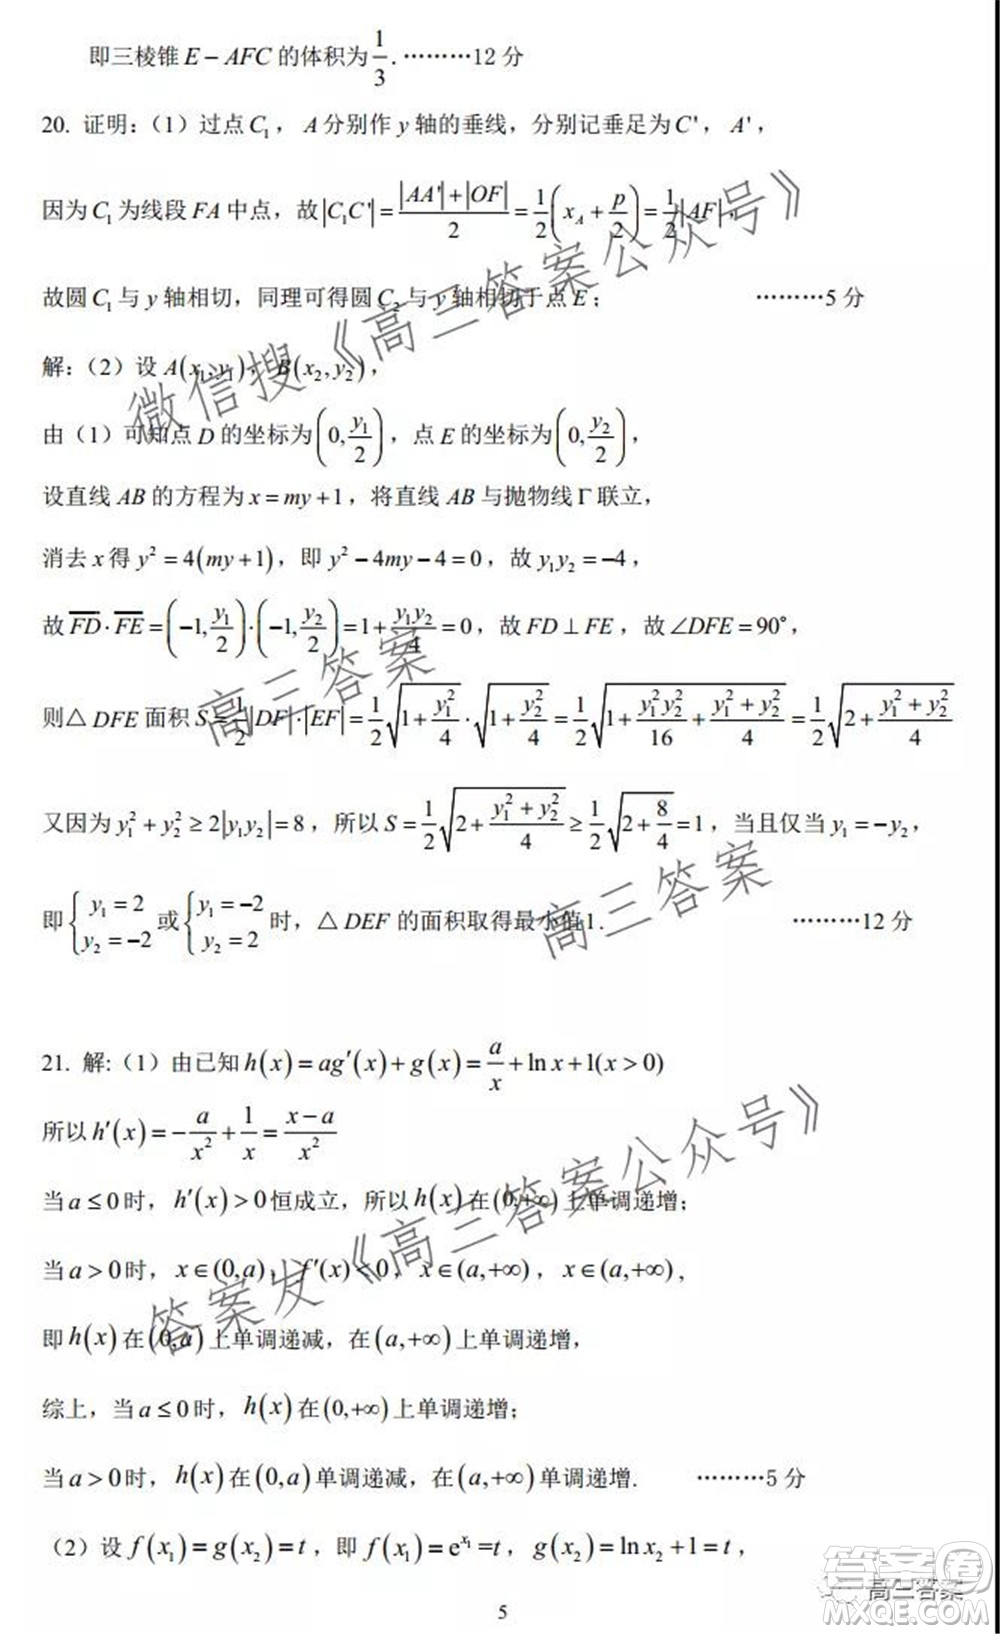 即三棱锥 E－AFC 的体积为 1/3 . ………12 分
20. 证明：（1）过点 C₁ ， A 分别作 y 轴的垂线，分别记垂足为 C' ， A' ，
因为 C₁ 为线段 FA 中点，故 |C₁C'| = (|AA'|+|OF|)/2 = 1/2(x_A + p/2) = 1/2|AF| ，
故圆 C₁ 与 y 轴相切，同理可得圆 C₂ 与 y 轴相切于点 E； ………5 分
解：（2）设 A(x₁,y₁)， B(x₂,y₂)，
由（1）可知点 D 的坐标为 (0, y₁/2) ，点 E 的坐标为 (0, y₂/2) ，
设直线 AB 的方程为 x = my + 1 ，将直线 AB 与抛物线 Γ 联立，
消去 x 得 y² = 4(my+1)，即 y² − 4my − 4 = 0 ，故 y₁y₂ = −4 ，
故 FD · FE = (−1, y₁/2) · (−1, y₂/2) = 1 + y₁y₂/4 = 0 ，故 FD ⊥ FE ，故 ∠DFE = 90° ，
则 △ DFE 面积 S = 1/2|DF|·|EF| = 1/2 √(1 + y₁²/4) · √(1 + y₂²/4) = 1/2 √(1 + y₁²y₂²/16 + (y₁² + y₂²)/4) = 1/2 √(2 + (y₁² + y₂²)/4)
又因为 y₁² + y₂² ≥ 2|y₁y₂| = 8 ，所以 S = 1/2 √(2 + (y₁² + y₂²)/4) ≥ 1/2 √(2 + 8/4) = 1 ，当且仅当 y₁ = −y₂ ，
即 { y₁ = 2 y₂ = −2 或 { y₁ = −2 y₂ = 2 时，△ DEF 的面积取得最小值1 . ………12 分
21. 解:（1）由已知 h(x) = ag′(x) + g(x) = a/x + ln x + 1(x > 0)
所以 h′(x) = −a/x² + 1/x = (x − a)/x²
当 a ≤ 0 时， h′(x) > 0 恒成立，所以 h(x) 在 (0,+∞) 上单调递增；
当 a > 0 时， x ∈ (0,a)， f′(x) < 0， x ∈ (a,+∞) ， x ∈ (a,+∞) ,
即 h(x) 在 (0,a) 上单调递减，在 (a,+∞) 上单调递增，
综上，当 a ≤ 0 时， h(x) 在 (0,+∞) 上单调递增；
当 a > 0 时， h(x) 在 (0,a) 单调递减，在 (a,+∞) 单调递增. ………5 分
（2）设 f(x₁) = g(x₂) = t ，即 f(x₁) = e^x₁ = t ， g(x₂) = ln x₂ + 1 = t ，
5
微信搜《高三答案公众号》
高三答案
高三答案
答案发《高三答案公众号》
高三答案
答案圈
MXQE.COM